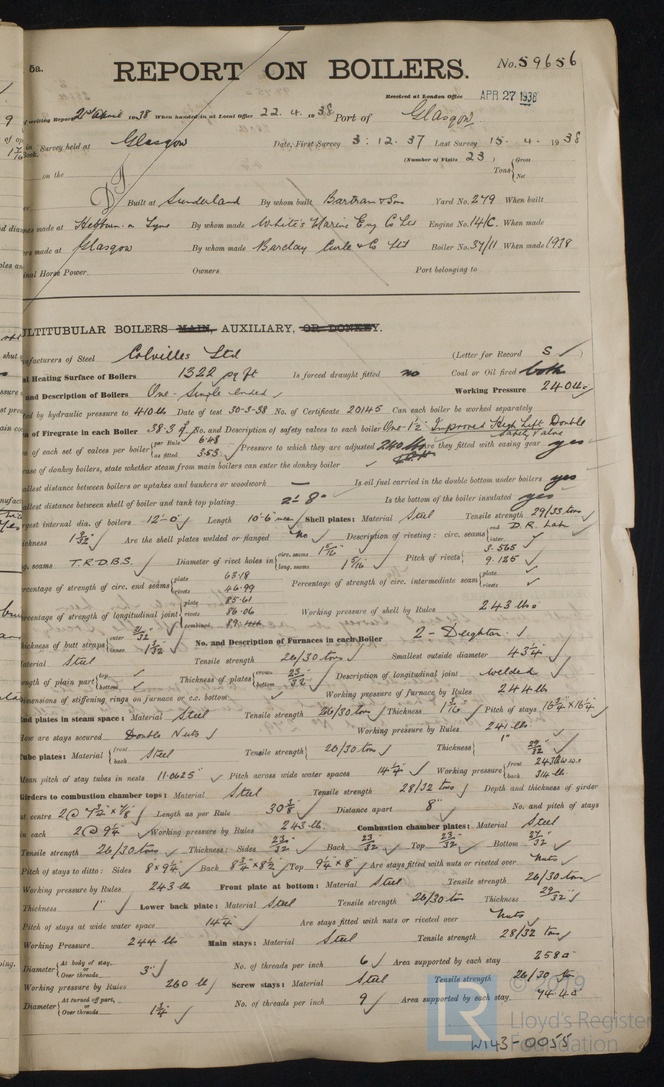 5a.
REPORT ON BOILERS.
No. 59656
Received at London Office APR 27 1938
of writing Report 1938 When handed in at Local Office 22.4.1938 Port of Glasgow
Survey held at Glasgow Date, First Survey 3.12.37 Last Survey 15.4.1938
(Number of Visits 23)
on the Tons { Gross
Net
Built at Sunderland By whom built Bartram & Sons Yard No. 279 When built
made at Hebburn on Tyne By whom made White's Marine Eng Co Ltd Engine No. 141C. When made
made at Glasgow By whom made Barclay Curle & Co Ltd Boiler No. 37/11 When made 1938
Horse Power. Owners. Port belonging to
ULTITUBULAR BOILERS MAIN, AUXILIARY, OR DONKEY.
facturers of Steel Colvilles Ltd (Letter for Record S)
Heating Surface of Boilers 1322 sq ft Is forced draught fitted no Coal or Oil fired both
and Description of Boilers One. Single ended Working Pressure 240 lbs
ed by hydraulic pressure to 410 lb Date of test 30-3-38 No. of Certificate 20145 Can each boiler be worked separately
of Firegrate in each Boiler 38.3 No. and Description of safety valves to each boiler One 1½" Improved High Lift Double Safety Valve
of each set of valves per boiler { per Rule 6.48
as fitted 3.53 Pressure to which they are adjusted 240 lbs Are they fitted with easing gear yes
case of donkey boilers, state whether steam from main boilers can enter the donkey boiler
allest distance between boilers or uptakes and bunkers or woodwork — Is oil fuel carried in the double bottom under boilers yes
allest distance between shell of boiler and tank top plating 2'-8" Is the bottom of the boiler insulated yes
rgest internal dia. of boilers 12'-0" Length 10'-6" Shell plates: Material Steel Tensile strength 29/33 tons
ickness 1 3/32" Are the shell plates welded or flanged No Description of riveting: circ. seams { end D.R. Lap
inter.
g. seams T.R.D.B.S. Diameter of rivet holes in { circ. seams 1 5/16"
long. seams 1 5/16" Pitch of rivets { 3.565
9.125
ercentage of strength of circ. end seams { plate 63.18
rivets 46.99 Percentage of strength of circ. intermediate seam { plate
rivets
ercentage of strength of longitudinal joint { plate 85.61
rivets 86.06
combined 89. Working pressure of shell by Rules 243 lbs
hickness of butt straps { outer 31/32"
inner 1 3/32" No. and Description of Furnaces in each Boiler 2 - Deighton
aterial Steel Tensile strength 26/30 tons Smallest outside diameter 43¼"
ngth of plain part { top
bottom Thickness of plates { crown
bottom 23/32" Description of longitudinal joint welded
imensions of stiffening rings on furnace or c.c. bottom Working pressure of furnace by Rules 244 lb
End plates in steam space: Material Steel Tensile strength 26/30 tons Thickness 1 3/16" Pitch of stays 16¾" × 16¼"
How are stays secured Double Nuts Working pressure by Rules 241 lb
Tube plates: Material { front
back Steel Tensile strength 26/30 tons Thickness { 1"
29/32"
Mean pitch of stay tubes in nests 11.0625" Pitch across wide water spaces 14¼" Working pressure { front 247 lb w.w.s
back 314 lb
Girders to combustion chamber tops: Material Steel Tensile strength 28/32 tons Depth and thickness of girder
at centre 2@ 7½" × ⅞" Length as per Rule 30⅜ Distance apart 8" No. and pitch of stays
in each 2@ 9¼" Working pressure by Rules 243 lb. Combustion chamber plates: Material Steel
Tensile strength 26/30 tons Thickness: Sides 23/32" Back 23/32" Top 23/32" Bottom 27/32"
Pitch of stays to ditto: Sides 8" × 9¼" Back 8¾" × 8½" Top 9¼" × 8" Are stays fitted with nuts or riveted over Nuts
Working pressure by Rules 243 lb Front plate at bottom: Material Steel Tensile strength 26/30 tons
Thickness 1" Lower back plate: Material Steel Tensile strength 26/30 ton Thickness 29/32"
Pitch of stays at wide water space 14¼" Are stays fitted with nuts or riveted over Nuts
Working Pressure 244 lb Main stays: Material Steel Tensile strength 28/32 tons
Diameter { At body of stay,
or
Over threads 3" No. of threads per inch 6 Area supported by each stay 258
Working pressure by Rules 260 lb Screw stays: Material Steel Tensile strength 26/30 tn
Diameter { At turned off part,
or
Over threads 1¾" No. of threads per inch 9 Area supported by each stay 74.4
© 2019
LR Lloyd's Register
Foundation
W143-0055